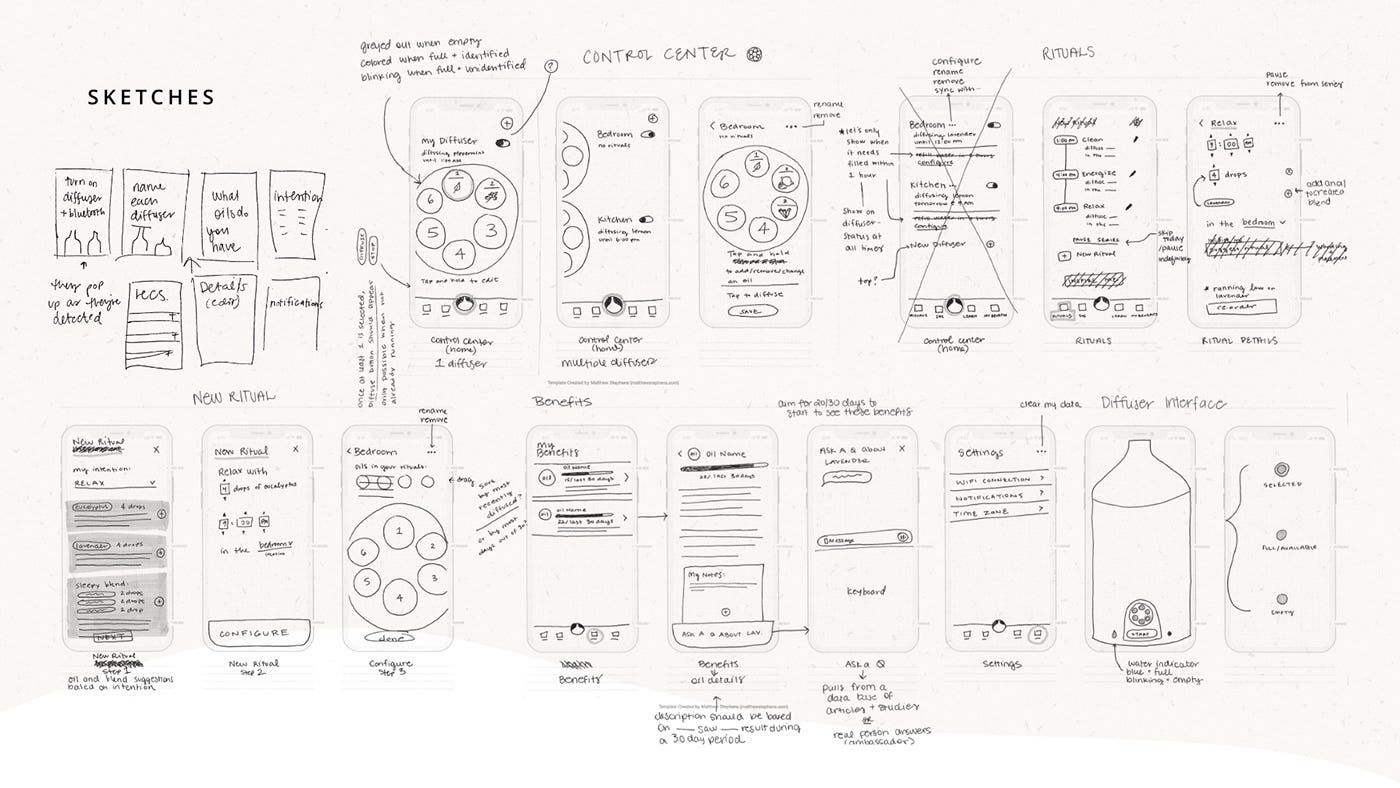 SKETCHES
turn on
diffuser
+ bluetooth
name
each
diffuser
what
oils do
you
have
intention
they pop
up as they're
detected
recs.
Details
(edit)
notifications
greyed out when empty
colored when full + identified
blinking when full + unidentified
?
CONTROL CENTER
my Diffuser
diffusing peppermint
until 1:00 AM
1
2
3
4
5
6
Tap and hold to edit
DIFFUSE
STOP
once at least 1 is selected,
Diffuse button should appear
only possible when not
already running
control center
(home)
1 diffuser
Bedroom
no rituals
Kitchen
diffusing lemon
until 6:00 pm
control center
(home)
multiple diffusers
rename
remove
< Bedroom ...
no rituals
1
4
5
6
Tap and hold
to add/remove/change
an oil
Tap to diffuse
SAVE
Template Created by Matthew Stephens (matthewstephens.com)
RITUALS
configure
rename
remove
sync with-
*let's only
show when
it needs
filled within
1 hour
Show on
diffuser-
status at
all times
top?
Bedroom ...
diffusing lavender
until 12:00 am
configure
Kitchen ...
diffusing lemon
tomorrow
configure
New Diffuser
LEARN
control center
(home)
1:00 PM
Clean
diffuse
in the
Energize
diffuse
in the
Relax
diffuse
in the
PAUSE SERIES
+ New Ritual
skip
today
/pause
indefinitely
RITUALS
LEARN
RITUALS
Pause
remove from series
< Relax ...
9 : 00
4 drops
Lavender
add anal
in the bedroom
* running low on
lavender
re-order
RITUAL DETAILS
NEW RITUAL
New Ritual X
my intention:
RELAX
eucalyptus 4 drops
lavender 4 drops
sleepy blend:
2 drops
2 drops
1 drop
NEXT
New Ritual
Step 1
oil and blend suggestions
based on intention
New Ritual X
Relax with
4 drops of eucalyptus
9 : 00 PM
in the bedroom
CONFIGURE
New Ritual
Step 2
rename
remove
< Bedroom ...
oils in your rituals:
drag
1
2
3
4
5
6
done
Configure
Step 3
Sort
by most
recently
diffused?
or by most
days out of 30?
Benefits
My
Benefits
oil
oil Name
15/last 30 days
oil
oil Name
22/last 30 days
Benefits
< oil Oil Name
22/ last 30 days
My Notes:
ASK A Q ABOUT LAV.
Benefits
oil details
Template Created by Matthew Stephens (matthewstephens.com)
description should be based
on ___ saw ___ result during
a 30 day period
aim for 20/30 days to
start to see these benefits
ASK A Q about X
LAVENDER
Message
Keyboard
Ask a Q
pulls from a
data base of
articles + studies
or
real person answers
(ambassador)
clear my data
Settings ...
WIFI CONNECTION >
NOTIFICATIONS >
TIME ZONE >
Settings
Diffuser Interface
START
water indicator
blue = full
blinking = empty
SELECTED
FULL/AVAILABLE
EMPTY